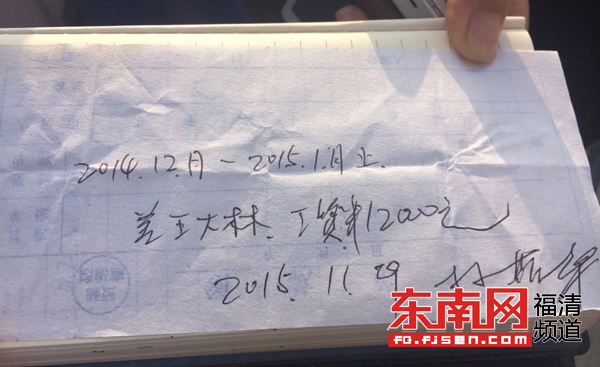 2014.12月－2015.1.月止.
差王大林.工资料12000元
2015.11.29
东南网
福清
频道
FQ.FJSEN.COM